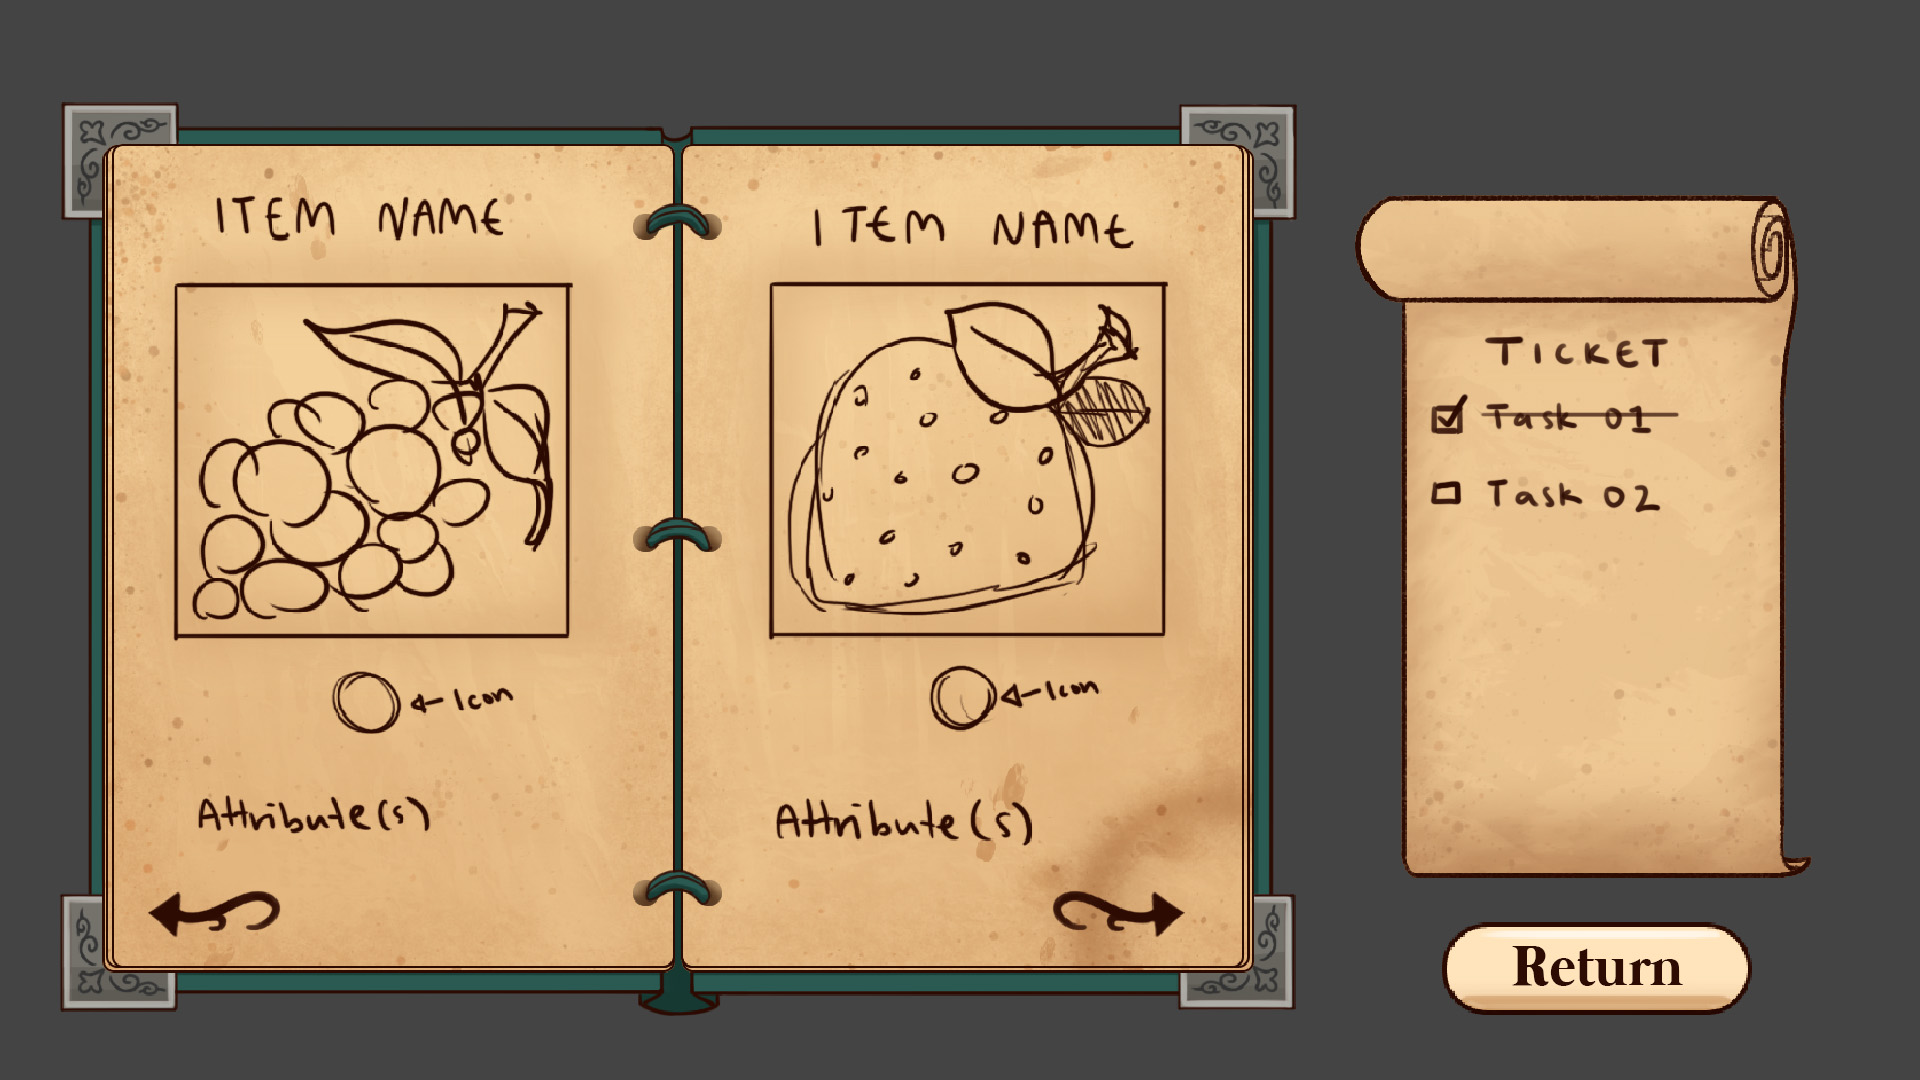 ITEM NAME
Icon
Attribute(s)
ITEM NAME
Icon
Attribute(s)
TICKET
Task 01
Task 02
Return